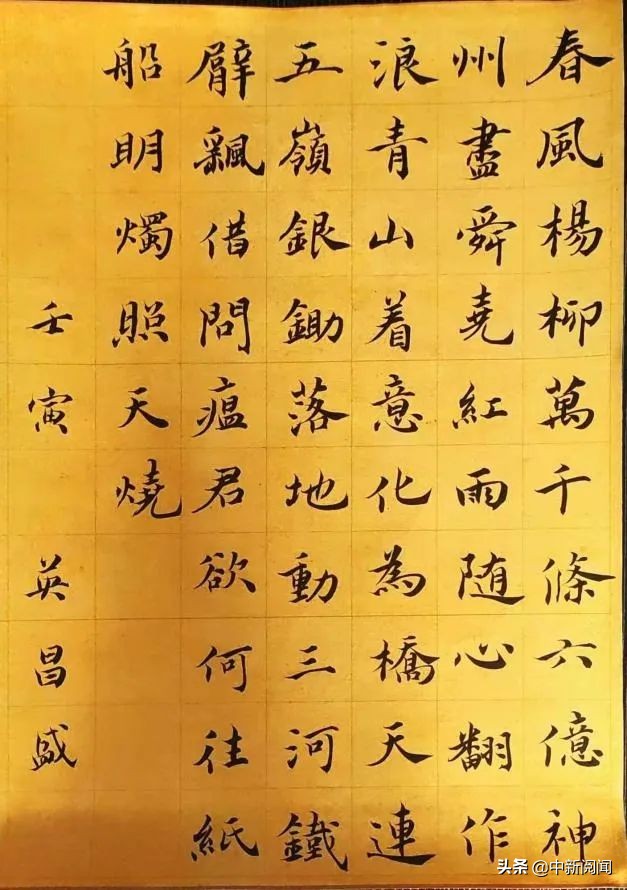 春風楊柳萬千條六億神
州盡舜堯紅雨随心翻作
浪青山着意化為橋天連
五嶺銀鋤落地動三河鐵
臂飖借問瘟君欲何往紙
船明燭照天燒
壬寅 英昌盛
头条 @中新阅闻